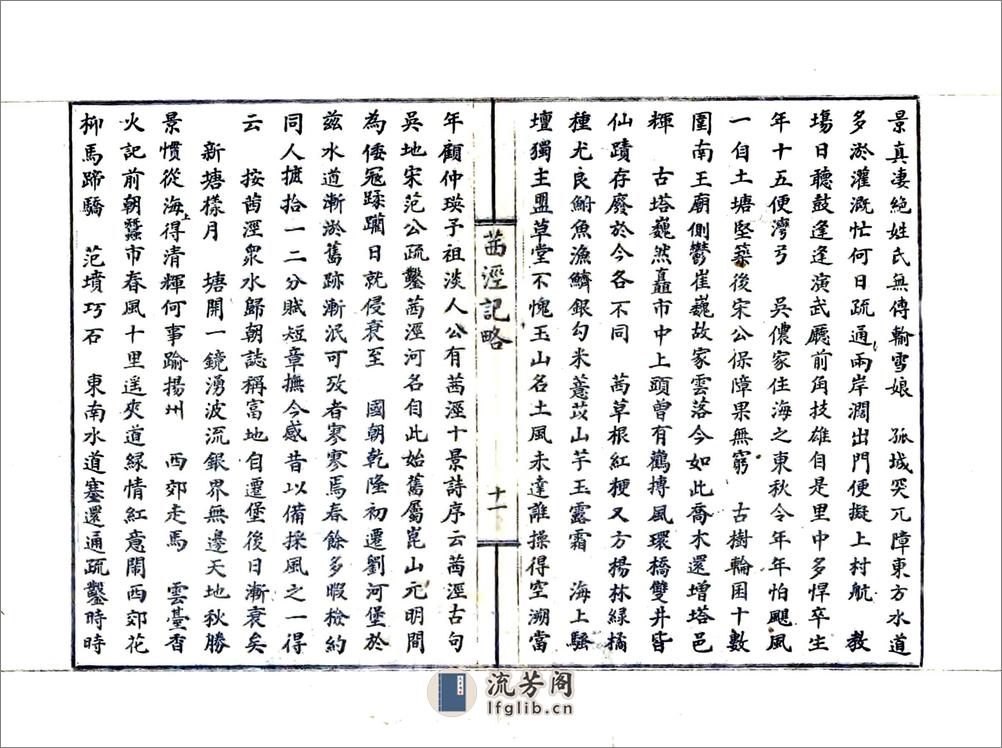 景真淒絕姓氏無傳輸雪娘　孤城突兀障東方水道
多淤灌溉忙何日疏通兩岸濶出門便擬上村航　教
塲日聽鼓逢逢演武廳前角技雄自是里中多悍卒生
年十五便灣弓　吳儂家住海之東秋令年年怕颶風
一自土塘堅築後宋公保障果無窮　古樹輪囷十數
圍南王廟側鬱崔巍故家雲落今如此喬木還增塔邑
輝　古塔巍然矗市中上頭曾有鸛摶風環橋雙井皆
仙蹟存廢於今各不同　茜草根紅粳又方揚林綠橘
種尤良鮒魚漁鱭銀勾米薏苡山芋玉露霜　海上騷
壇獨主盟草堂不愧玉山名土風未達誰操得空溯當
茜涇記略
十一
年顧仲瑛子祖淡人公有茜涇十景詩序云茜涇古句
吳地宋范公疏鑿茜涇河名自此始舊屬崑山元明間
為倭冦蹂躪日就侵衰至　國朝乾隆初遷劉河堡於
兹水道漸淤舊跡漸泯可攷者寥寥焉春餘多暇檢約
同人摭拾一二分賦短章撫今感昔以備採風之一得
云　按茜涇眾水歸朝誌稱富地自遷堡後日漸衰矣
新塘樣月　塘開一鏡湧波流銀界無邊天地秋勝
景慣從海上得清輝何事踰揚州　西郊走馬　雲臺香
火記前朝蠶市春風十里遥夾道緑情紅意鬧西郊花
柳馬蹄驕　范墳巧石　東南水道塞還通疏鑿時時
流芳阁
lfglib.cn